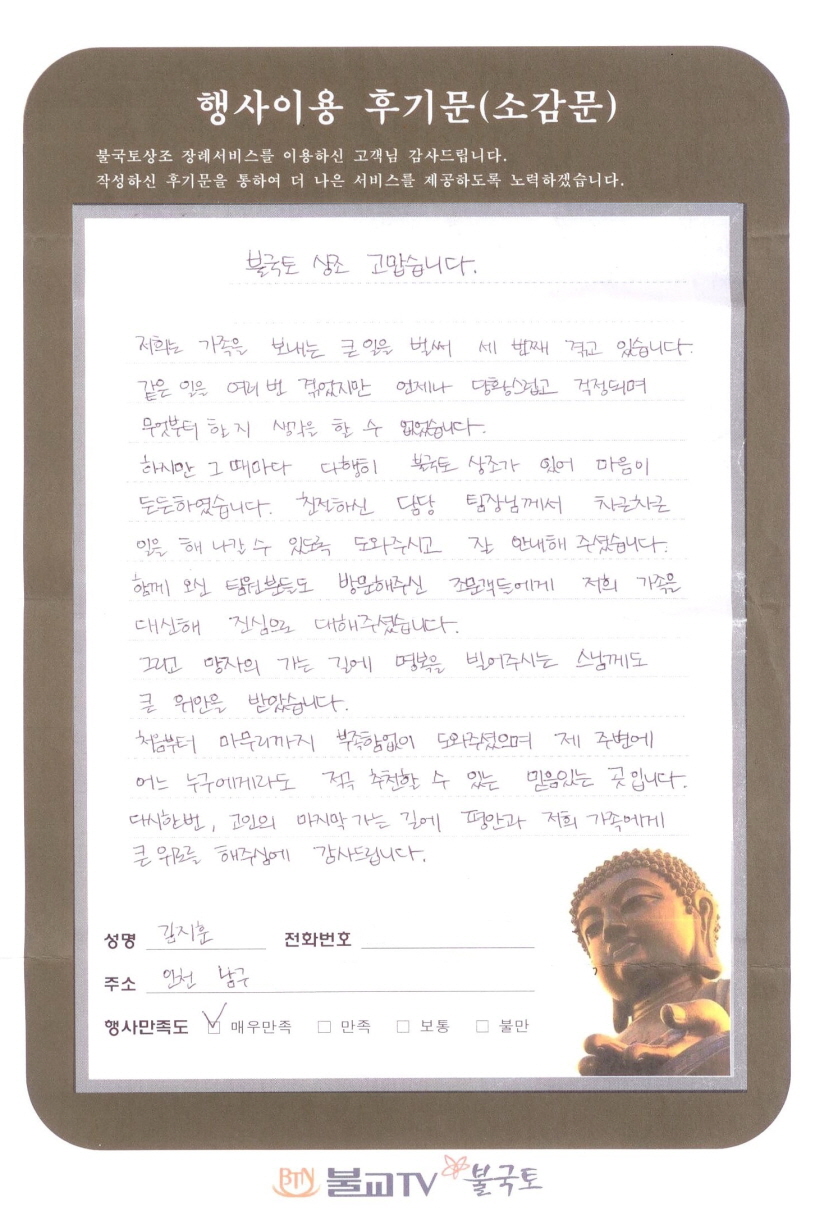 행사이용 후기문(소감문)
불국토상조 장례서비스를 이용하신 고객님 감사드립니다.
작성하신 후기문을 통하여 더 나은 서비스를 제공하도록 노력하겠습니다.
불국토 상조 고맙습니다.
저희는 가족을 보내는 큰일을 벌써 세 번째 겪고 있습니다.
같은 일을 여러 번 겪었지만 언제나 당황스럽고 걱정되며
무엇부터 할지 생각을 할 수 없었습니다.
하지만 그 때마다 다행히 불국토 상조가 있어 마음이
든든하였습니다. 친절하신 담당 팀장님께서 차근차근
일을 해 나갈 수 있도록 도와주시고 잘 안내해 주셨습니다.
함께 오신 팀원분들도 방문해주신 조문객들에게 저희 가족을
대신해 진심으로 대해주셨습니다.
그리고 망자의 가는 길에 명복을 빌어주시는 스님께도
큰 위안을 받았습니다.
처음부터 마무리까지 부족함없이 도와주셨으며 제 주변에
어느 누구에게라도 적극 추천할 수 있는 믿음있는 곳입니다.
다시한번, 고인의 마지막 가는 길에 평안과 저희 가족에게
큰 위로를 해주심에 감사드립니다.
성명 김지훈 전화번호
주소 인천 남구
행사만족도 ☑ 매우만족 □ 만족 □ 보통 □ 불만
BTN 불교TV 불국토